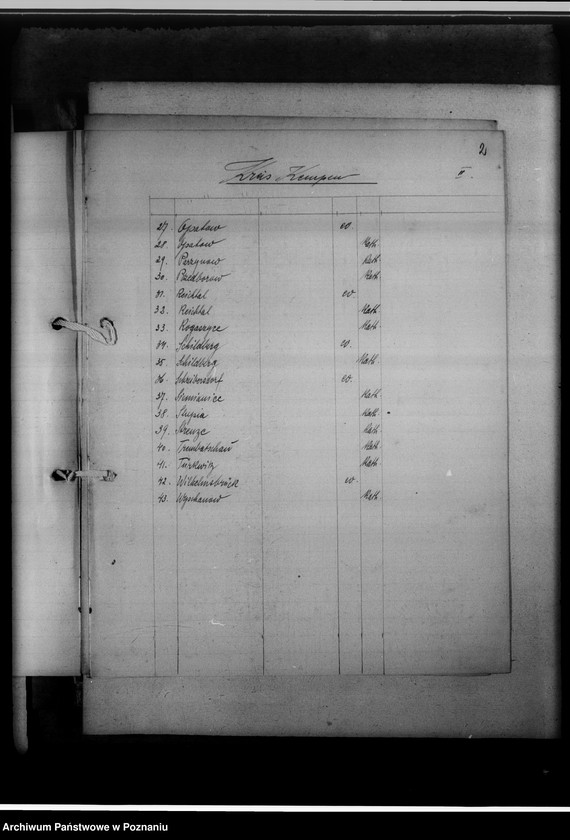 2
Kreis Kempen II.
27. Opatow ev.
28. Opatow Kath.
29. Parzynow Kath.
30. Przedborow Kath.
31. Reichtal ev.
32. Reichtal Kath.
33. Rogaszyce Kath.
34. Schildberg ev.
35. Schildberg Kath.
36. Schreibersdorf ev.
37. Siemianice Kath.
38. Slupia Kath.
39. Strenze Kath.
40. Trembatschau Kath.
41. Turkwitz Kath.
42. Wilhelmsbrück ev.
43. Wyschanow Kath.
Archiwum Państwowe w Poznaniu